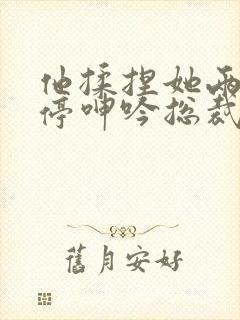 他揉捏她两
停呻吟总裁
舊月安好